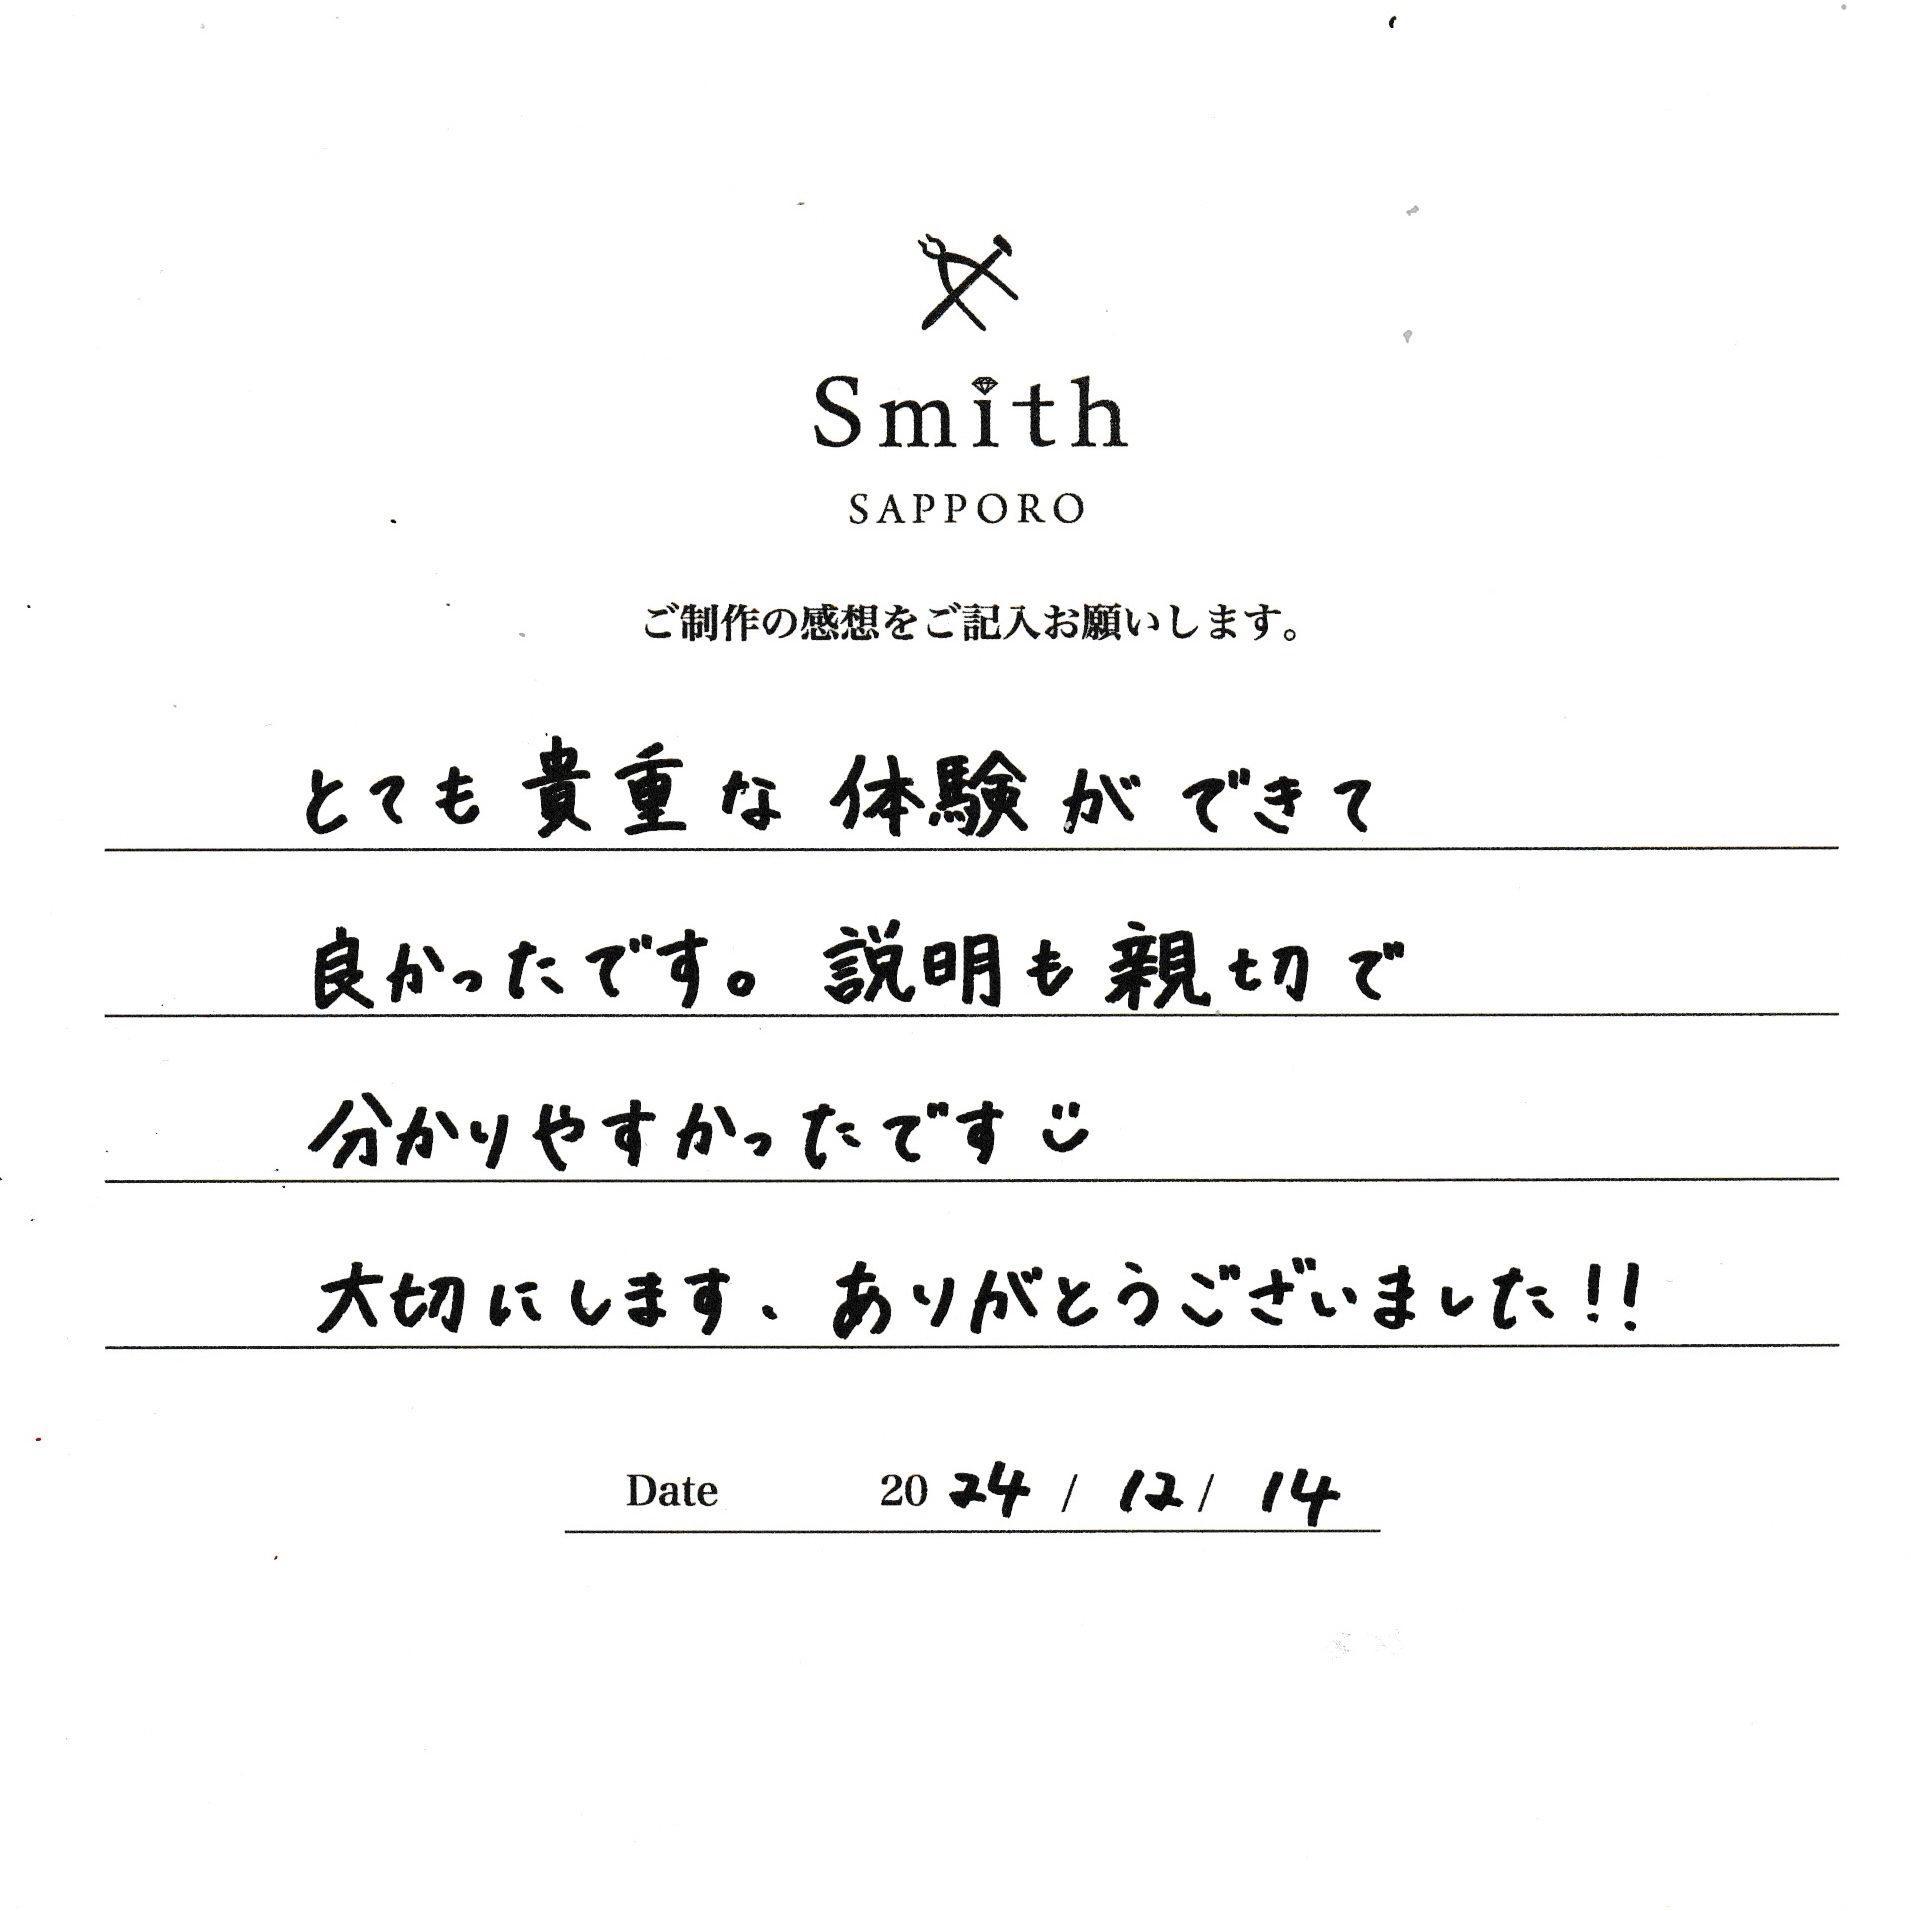 Smith
SAPPORO
ご制作の感想をご記入お願いします。
とても貴重な体験ができて
良かったです。説明も親切で
分かりやすかったです
大切にします、ありがとうございました!!
Date 2024 / 12 / 14